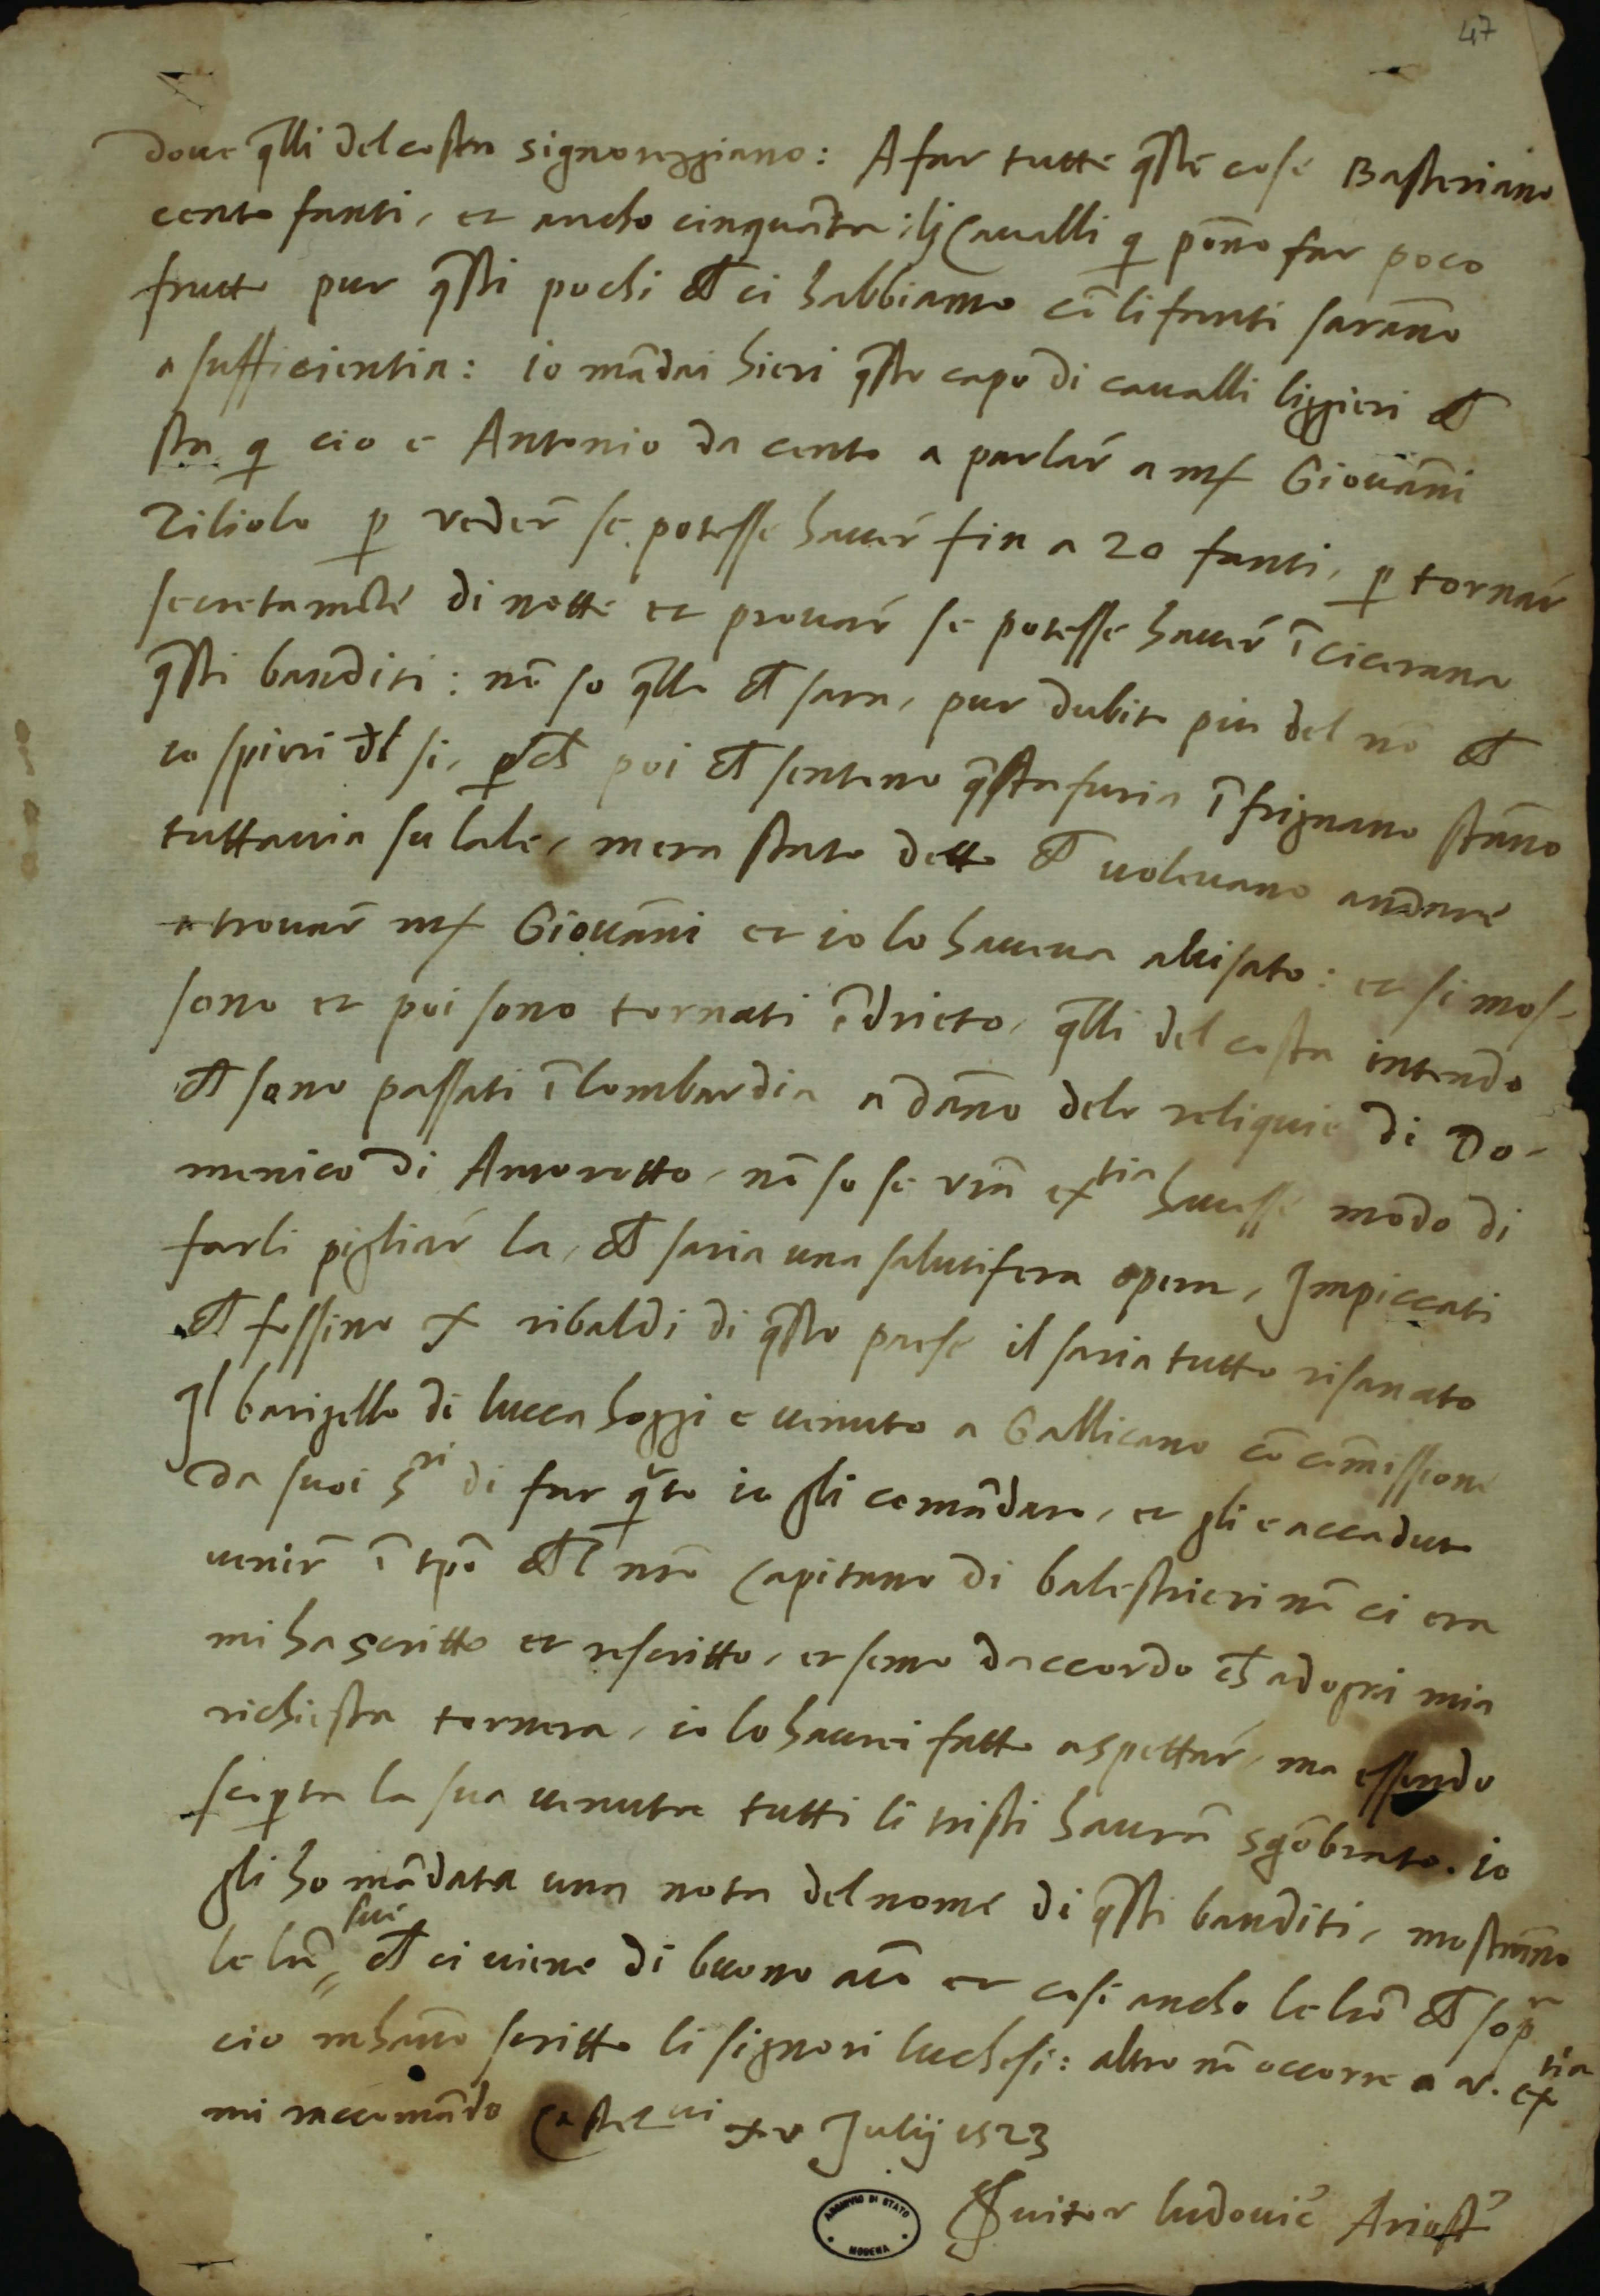 47
doue q̄lli del costa signoreggiano: A far tutte q̄ste cose Basteriano
cento fanti, et ancho cinquāta: li Caualli q̄ pōno far poco
frutto pur q̄sti pochi ch̄ ci habbiamo cō li fanti sarāno
a sufficientia: io mādai hieri q̄sto capo di caualli liggieri ch̄
sta q̄ cio e Antonio da cento a parlar̄ a m̄s Giouāni
Ziliolo p̱ veder̄ se potesse hauer̄ fin a 20 fanti, p̱ tornar̄
secretamēte di notte et prouar̄ se potesse hauer̄ ī cicerana
q̄sti banditi: nō so q̄llo ch̄ sara, pur dubito piu del nō ch̄
io spieri dl̄ si, p̱ch̄ poi ch̄ senteno q̄sta furia ī frignano stāno
tuttauia su lale, mera stato detto ch̄ uoleuano andare
a trouar̄ m̄s Giouāni et io lo haueua auisato: et si mos-
sono et poi sono tornati īdrieto, q̄lli del costa intendo
ch̄ sono passati ī lombardia a dāno dele reliquie di Do-
menico di Amorotto, nō so se vr̄a extia hauesse modo di
farli pigliar̄ la, ch̄ saria una salutifera opera, Impiccati
ch̄ fossino x ribaldi di q̄sto paese il saria tutto risanato
Il barigello di lucca hoggi e uenuto a Gallicano cō cōmissione
da suoi Sri di far q̄to io gli comādaro, et gli e accaduto
uenir̄ ī tp̄o ch̄l nr̄o Capitano di balestrieri nō ci era
mi ha scritto et rescritto, et semo daccordo ch̄ ad ogni mia
richiesta tornera, io lo haurei fatto aspettar̄, ma essendo
scop̱ta la sua uenuta tutti li tristi haurā sgōbrato. io
gli ho mādata una nota del nome di q̄sti banditi, mostrāno
le lr̄e sue ch̄ ci viene di buono aīo et cosi ancho le lr̄e ch̄ sop̄ra
cio mhāno scritto li signori luchesi: altro nō occorre a v. extia
mi raccomādo Castelui xv Julij 1523
Suitor ludouic9 Ariost9
ARCHIVIO DI STATO
MODENA